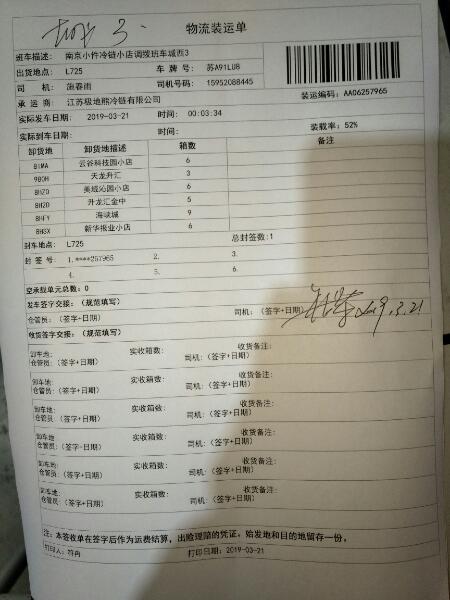 物流装运单
班车描述: 南京小件冷链小店调拨班车城西3
出货地点: L725 车 牌 号: 苏A91LU8
司 机: 施春雨 司机号码: 15952088445
承 运 商: 江苏极地熊冷链有限公司 装运编码: AA06257965
实际发车日期: 2019-03-21 时间: 00:03:34
实际到车日期: 时间: 装载率: 52%
卸货地 卸货地描述 箱数 备注
81MA 云谷科技园小店 6
980H 天龙升汇 3
8HZ0 美域沁园小店 6
8HZD 升龙汇金中 5
8HFY 海峡城 9
8H3X 新华报业小店 6
封车地点: L725 总封签数:1
封 签 号 1.****257965 2. 3.
4. 5. 6.
空承载单元总数: 0
发车签字交接: (规范填写)
仓管员: (签字+日期) 司机: (签字+日期) 2019.3.21
收货签字交接: (规范填写)
卸车地: 实收箱数: 收货备注:
仓管员: (签字+日期) 司机: (签字+日期)
卸车地: 实收箱数: 收货备注:
仓管员: (签字+日期) 司机: (签字+日期)
卸车地: 实收箱数: 收货备注:
仓管员: (签字+日期) 司机: (签字+日期)
卸车地: 实收箱数: 收货备注:
仓管员: (签字+日期) 司机: (签字+日期)
卸车地: 实收箱数: 收货备注:
仓管员: (签字+日期) 司机: (签字+日期)
卸车地: 实收箱数: 收货备注:
仓管员: (签字+日期) 司机: (签字+日期)
注: 本签收单在签字后作为运费结算, 出险理赔的凭证, 始发地和目的地留存一份。
打印人: 符冉 打印日期: 2019-03-21